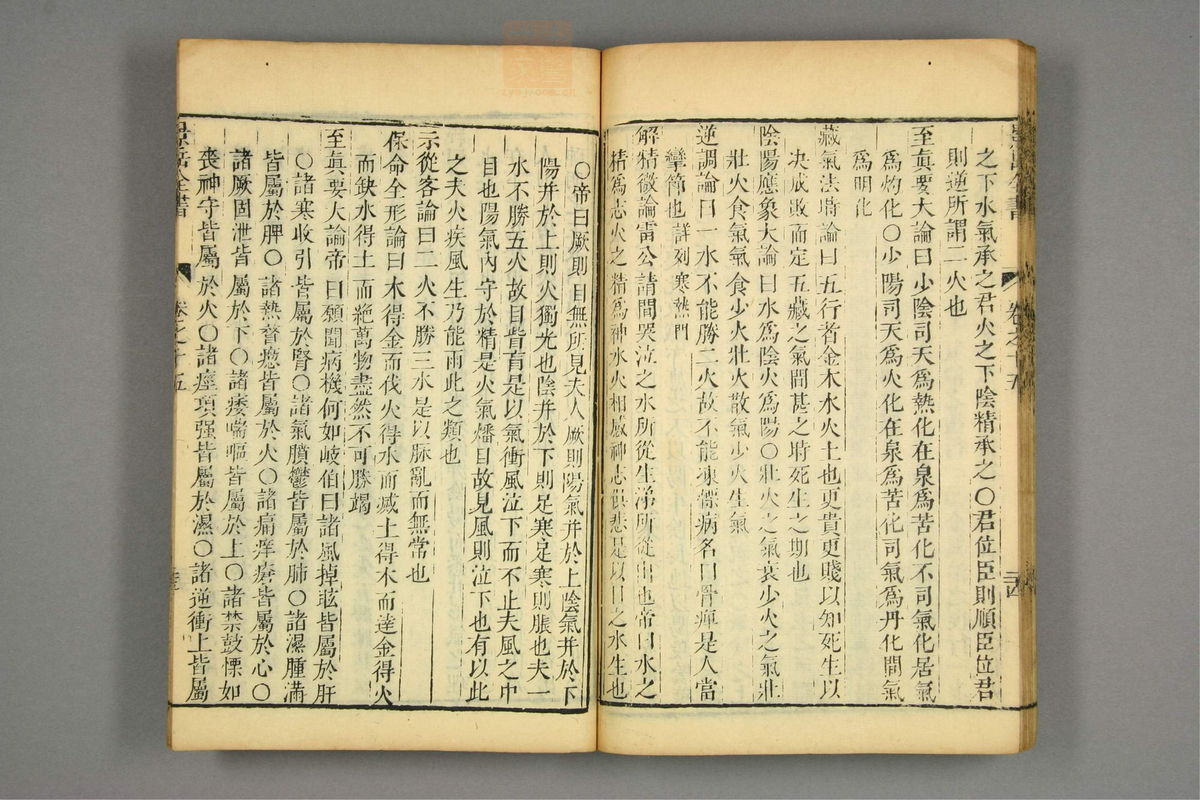 之下水氣承之君火之下陰精承之○君位臣則順臣位君
則逆所謂二火也
至眞要大論曰少陰司天爲熱化在泉爲苦化不司氣化居氣
爲灼化○少陽司天爲火化在泉爲苦化司氣爲丹化間氣
爲明化
藏氣法時論曰五行者金木水火土也更貴更賤以知死生以
決成敗而定五藏之氣間甚之時死生之期也
陰陽應象大論曰水爲陰火爲陽○壯火之氣衰少火之氣壯
壯火食氣氣食少火壯火散氣少火生氣
逆調論曰一水不能勝二火故不能凍慄病名曰骨痺是人當
攣節也詳列寒熱門
解精微論雷公請問哭泣之水所從生涕所從出也帝曰水之
精爲志火之精爲神水火相感神志俱悲是以目之水生也
卷之十五
○帝曰厥則目無所見夫人厥則陽氣并於上陰氣并於下
陽并於上則火獨光也陰并於下則足寒足寒則脹也夫一
水不勝五火故目眥盲是以氣衝風泣下而不止夫風之中
目也陽氣內守於精是火氣燔目故見風則泣下也有以此
之夫火疾風生乃能雨此之類也
示從容論曰二火不勝三水是以脉亂而無常也
保命全形論曰木得金而伐火得水而滅土得木而達金得火
而缺水得土而絶萬物盡然不可勝竭
至眞要大論帝曰願聞病機何如岐伯曰諸風掉眩皆屬於肝
○諸寒收引皆屬於腎○諸氣膹鬱皆屬於肺○諸濕腫滿
皆屬於脾○諸熱瞀瘛皆屬於火○諸痛痒瘡皆屬於心○
諸厥固泄皆屬於下○諸痿喘嘔皆屬於上○諸禁鼓慄如
喪神守皆屬於火○諸痙項强皆屬於濕○諸逆衝上皆屬
景岳全書
卷之十五